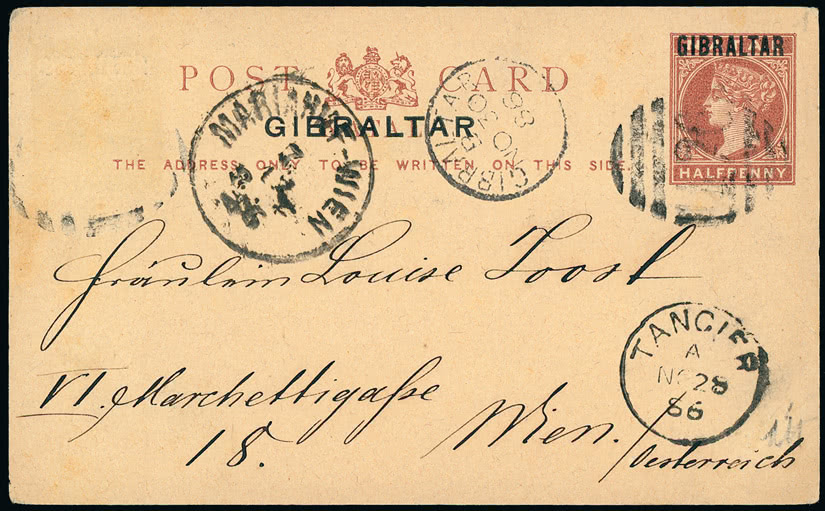 GIBRALTAR
POST CARD
GIBRALTAR
THE ADDRESS ONLY TO BE WRITTEN ON THIS SIDE.
HALFPENNY
MARIAHILF-WIEN
GIBRALTAR
B
NO 30
86
Fräulein Louise Joost
VI. Marchettigaße
18.
Wien.
/Oesterreich
TANGIER
A
NO 28
86